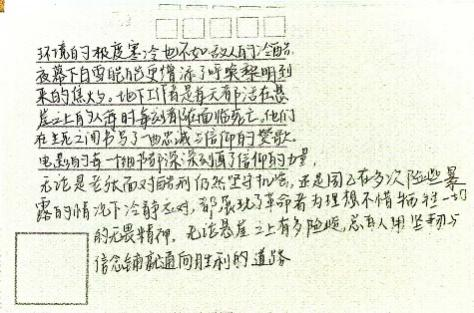 环境的极度寒冷也不如敌人的冷酷
夜幕下白雪皑皑更增添了呼唤黎明到
来的焦灼。地下工作者是每天都活在悬
崖之上的人每时每刻都在面临死亡,他们
在生死之间书写了一曲忠诚与信仰的赞歌.
电影的每一细节都深深刻画了信仰的力量,
无论是老张面对酷刑仍然坚守机密,还是周乙在多次险些暴
露的情况下冷静应对,都展现了革命者为理想不惜牺牲一切
的无畏精神。无论悬崖之上有多险峻,总有人用坚韧与
信念铺就通向胜利的道路